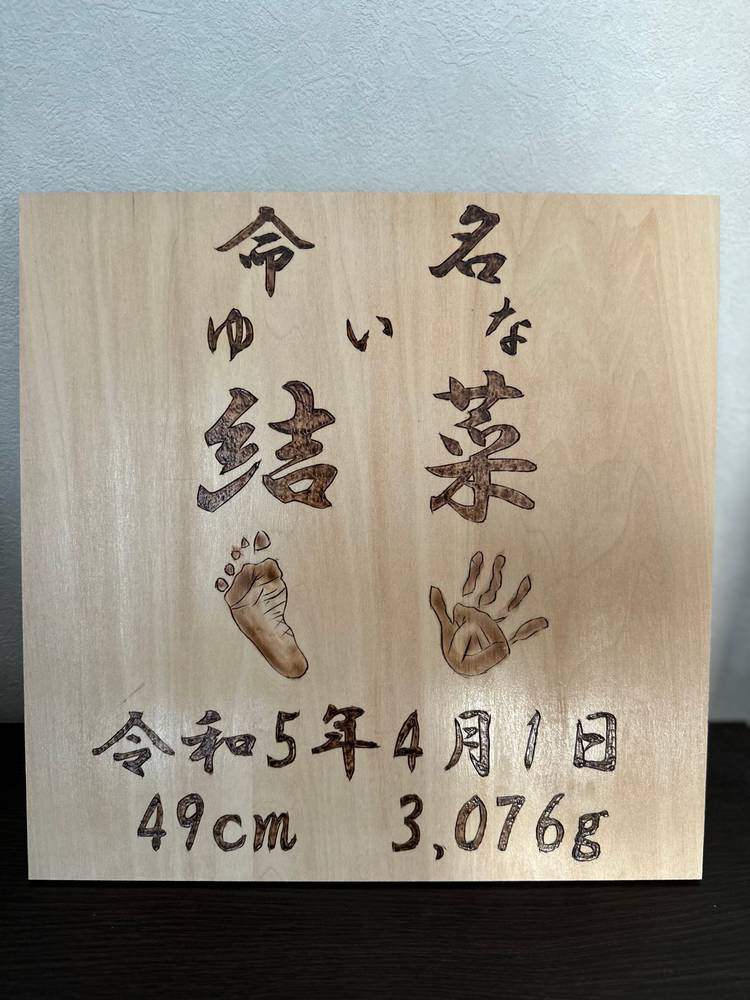 命名
ゆいな
結菜
令和5年4月1日
49cm 3,076g